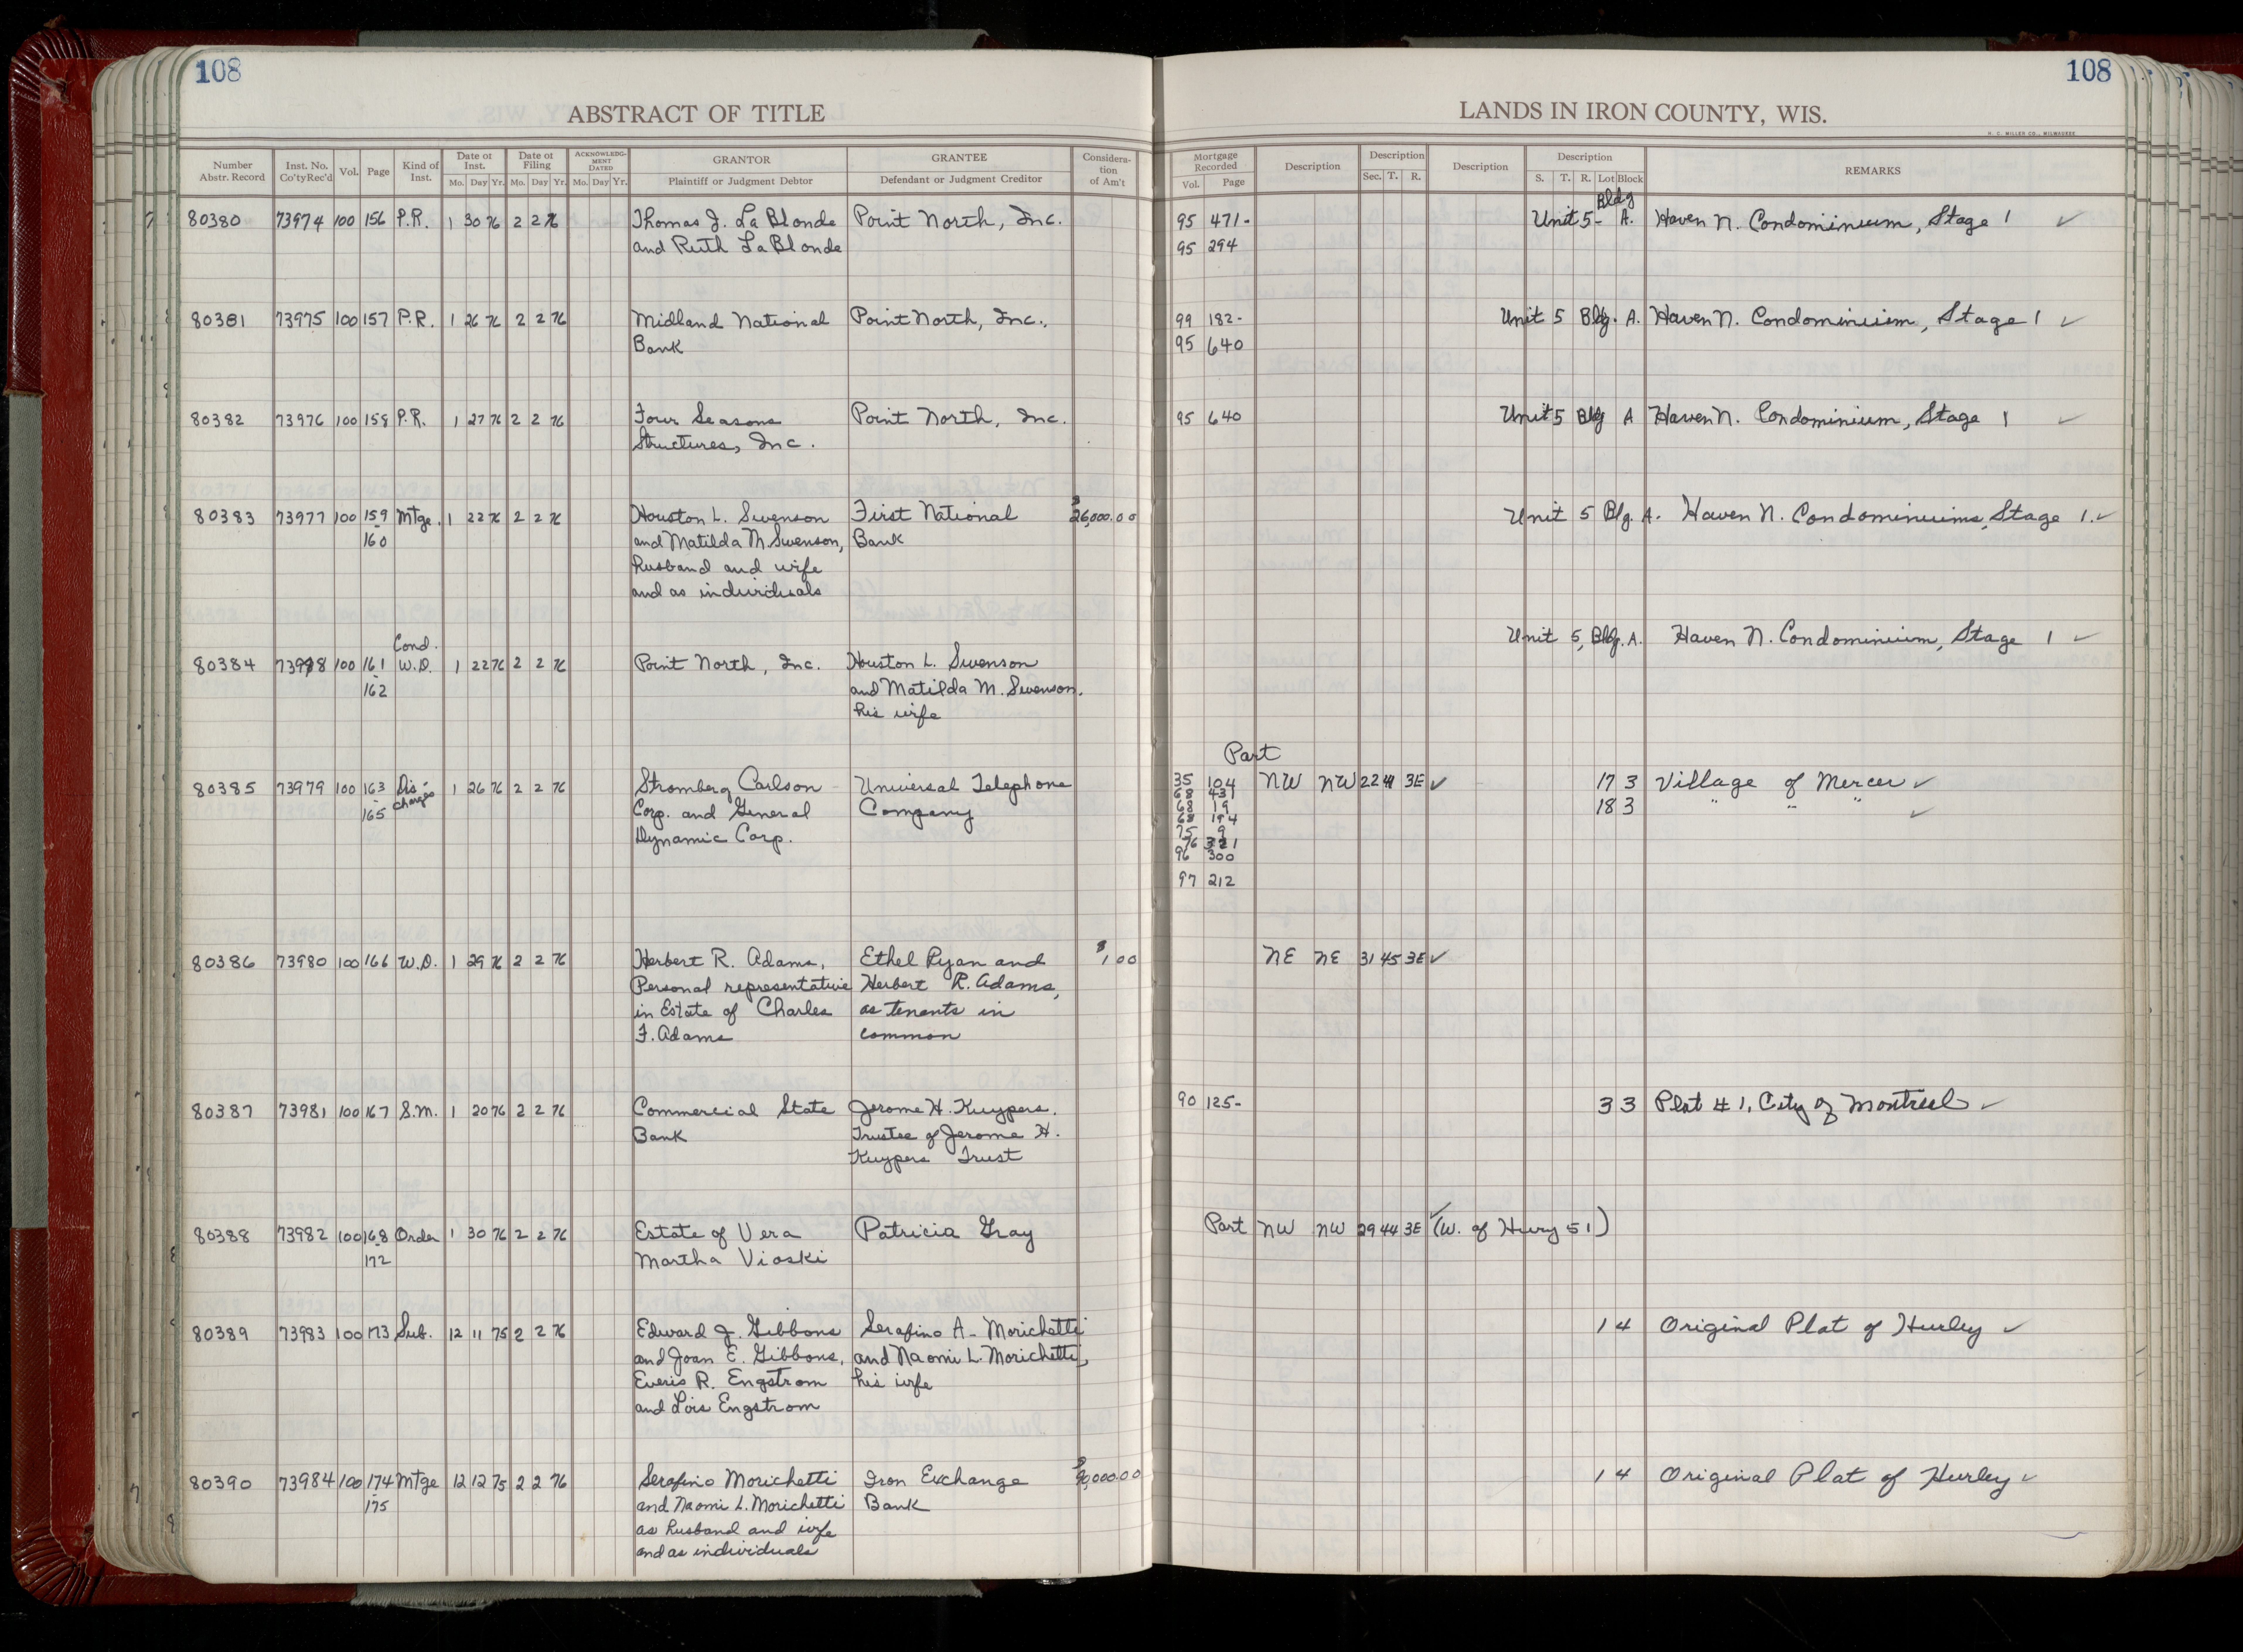 108
108
ABSTRACT OF TITLE
LANDS IN IRON COUNTY, WIS.
H. C. MILLER CO., MILWAUKEE
Number Abstr. Record Inst. No. Co'ty Rec'd Vol. Page Kind of Inst. Date of Inst. Mo. Day Yr. Date of Filing Mo. Day Yr. ACKNOWLEDGMENT DATED Mo. Day Yr. GRANTOR Plaintiff or Judgment Debtor GRANTEE Defendant or Judgment Creditor Consideration of Am't
Mortgage Recorded Vol. Page Description Description Sec. T. R. Description Description S. T. R. Lot Block REMARKS
Bldg
80380 73974 100 156 P.R. 1 30 76 2 2 76 Thomas J. LaBlonde Point North, Inc. 95 471- Unit 5- A. Haven N. Condominium, Stage 1 ✓
and Ruth LaBlonde 95 294
80381 73975 100 157 P.R. 1 26 76 2 2 76 Midland National Point North, Inc., 99 182- Unit 5 Bldg. A. Haven N. Condominium, Stage 1 ✓
Bank 95 640
80382 73976 100 158 P.R. 1 27 76 2 2 76 Four Seasons Point North, Inc. 95 640 Unit 5 Bldg A Haven N. Condominium, Stage 1 ✓
Structures, Inc.
80383 73977 100 159 Mtge. 1 22 76 2 2 76 Houston L. Swenson First National $26,000.00 Unit 5 Blg. A. Haven N. Condominiums, Stage 1. ✓
- 160 and Matilda M. Swenson, Bank
husband and wife
and as individuals
Cond. Unit 5, Bldg. A. Haven N. Condominium, Stage 1 ✓
80384 73978 100 161 W.D. 1 22 76 2 2 76 Point North, Inc. Houston L. Swenson
- 162 and Matilda M. Swenson,
his wife
Part
80385 73979 100 163 Discharges 1 26 76 2 2 76 Stromberg Carlson Universal Telephone 35 104 NW NW 22 41 3E ✓ 17 3 Village of Mercer ✓
- 165 Corp. and General Company 68 431 18 3 " " " ✓
Dynamic Corp. 68 19
68 194
75 9
76 321
96 300
97 212
80386 73980 100 166 W.D. 1 29 76 2 2 76 Herbert R. Adams, Ethel Ryan and $1.00 NE NE 31 45 3E ✓
Personal representative Herbert R. Adams,
in Estate of Charles as tenants in
F. Adams common
80387 73981 100 167 S.M. 1 20 76 2 2 76 Commercial State Jerome H. Kuypers, 90 125- 3 3 Plat #1, City of Montreal ✓
Bank Trustee of Jerome H.
Kuypers Trust
80388 73982 100 168 Order 1 30 76 2 2 76 Estate of Vera Patricia Gray Part NW NW 29 44 3E ✓ (W. of Hwy 51)
172 Martha Vioski
80389 73983 100 173 Sub. 12 11 75 2 2 76 Edward J. Gibbons Serafino A. Morichetti 1 4 Original Plat of Hurley ✓
and Joan E. Gibbons, and Naomi L. Morichetti,
Everis R. Engstrom his wife
and Lois Engstrom
80390 73984 100 174 Mtge 12 12 75 2 2 76 Serafino Morichetti Iron Exchange 1 4 Original Plat of Hurley ✓
- 175 and Naomi L. Morichetti Bank
as husband and wife
and as individuals